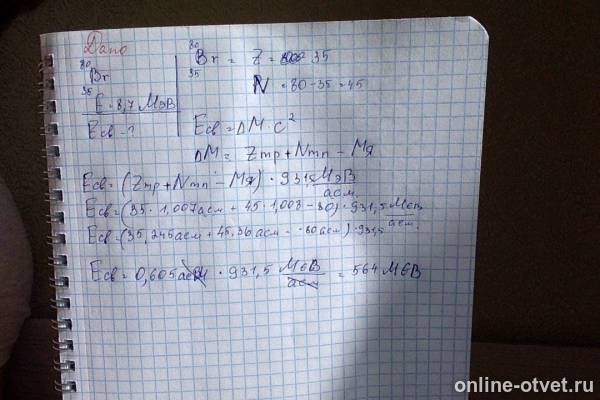 Дано
⁸⁰₃₅Br
⁸⁰₃₅Br = Z = 35
N = 80-35=45
E = 8,7 МэВ
Eсв - ?
Eсв = ΔM · c²
ΔM = Zmp + Nmn - Mя
Eсв = (Zmp + Nmn - Mя) · 931,5 МэВ/аем
Eсв = (35 · 1,007 аем + 45 · 1,008 - 80) · 931,5 МэВ/аем
Eсв = (35,245 аем + 45,36 аем - 80 аем) · 931,5
Eсв = 0,605 аем · 931,5 МэВ/аем = 564 МэВ
online-otvet.ru